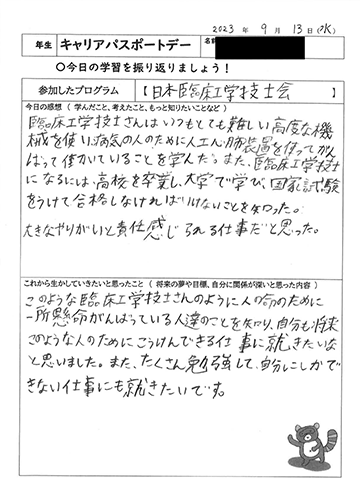 2023年 9月 13日(水)
年生 キャリアパスポートデー 名前
○今日の学習を振り返りましょう！
参加したプログラム 【日本臨床工学技士会 】
今日の感想（ 学んだこと、考えたこと、もっと知りたいことなど ）
臨床工学技士さんはいつもとても難しい高度な機
械を使い、病気の人のために人工心肺装置を使ってがん
ばって働かいていることを学んだ。また、臨床工学技士
になるには、高校を卒業し、大学で学び、国家試験
をうけて合格しなければいけないことを知った。
大きなやりがいと責任感じられる仕事だと思った。
これから生かしていきたいと思ったこと（ 将来の夢や目標、自分に関係が深いと思った内容 ）
このような臨床工学技士さんのように人の命のために
一所懸命がんばっている人達のことを知り、自分も将来
このような人のためにこうけんできる仕事に就きたいな
と思いました。また、たくさん勉強して、自分にしかで
きない仕事にも就きたいです。